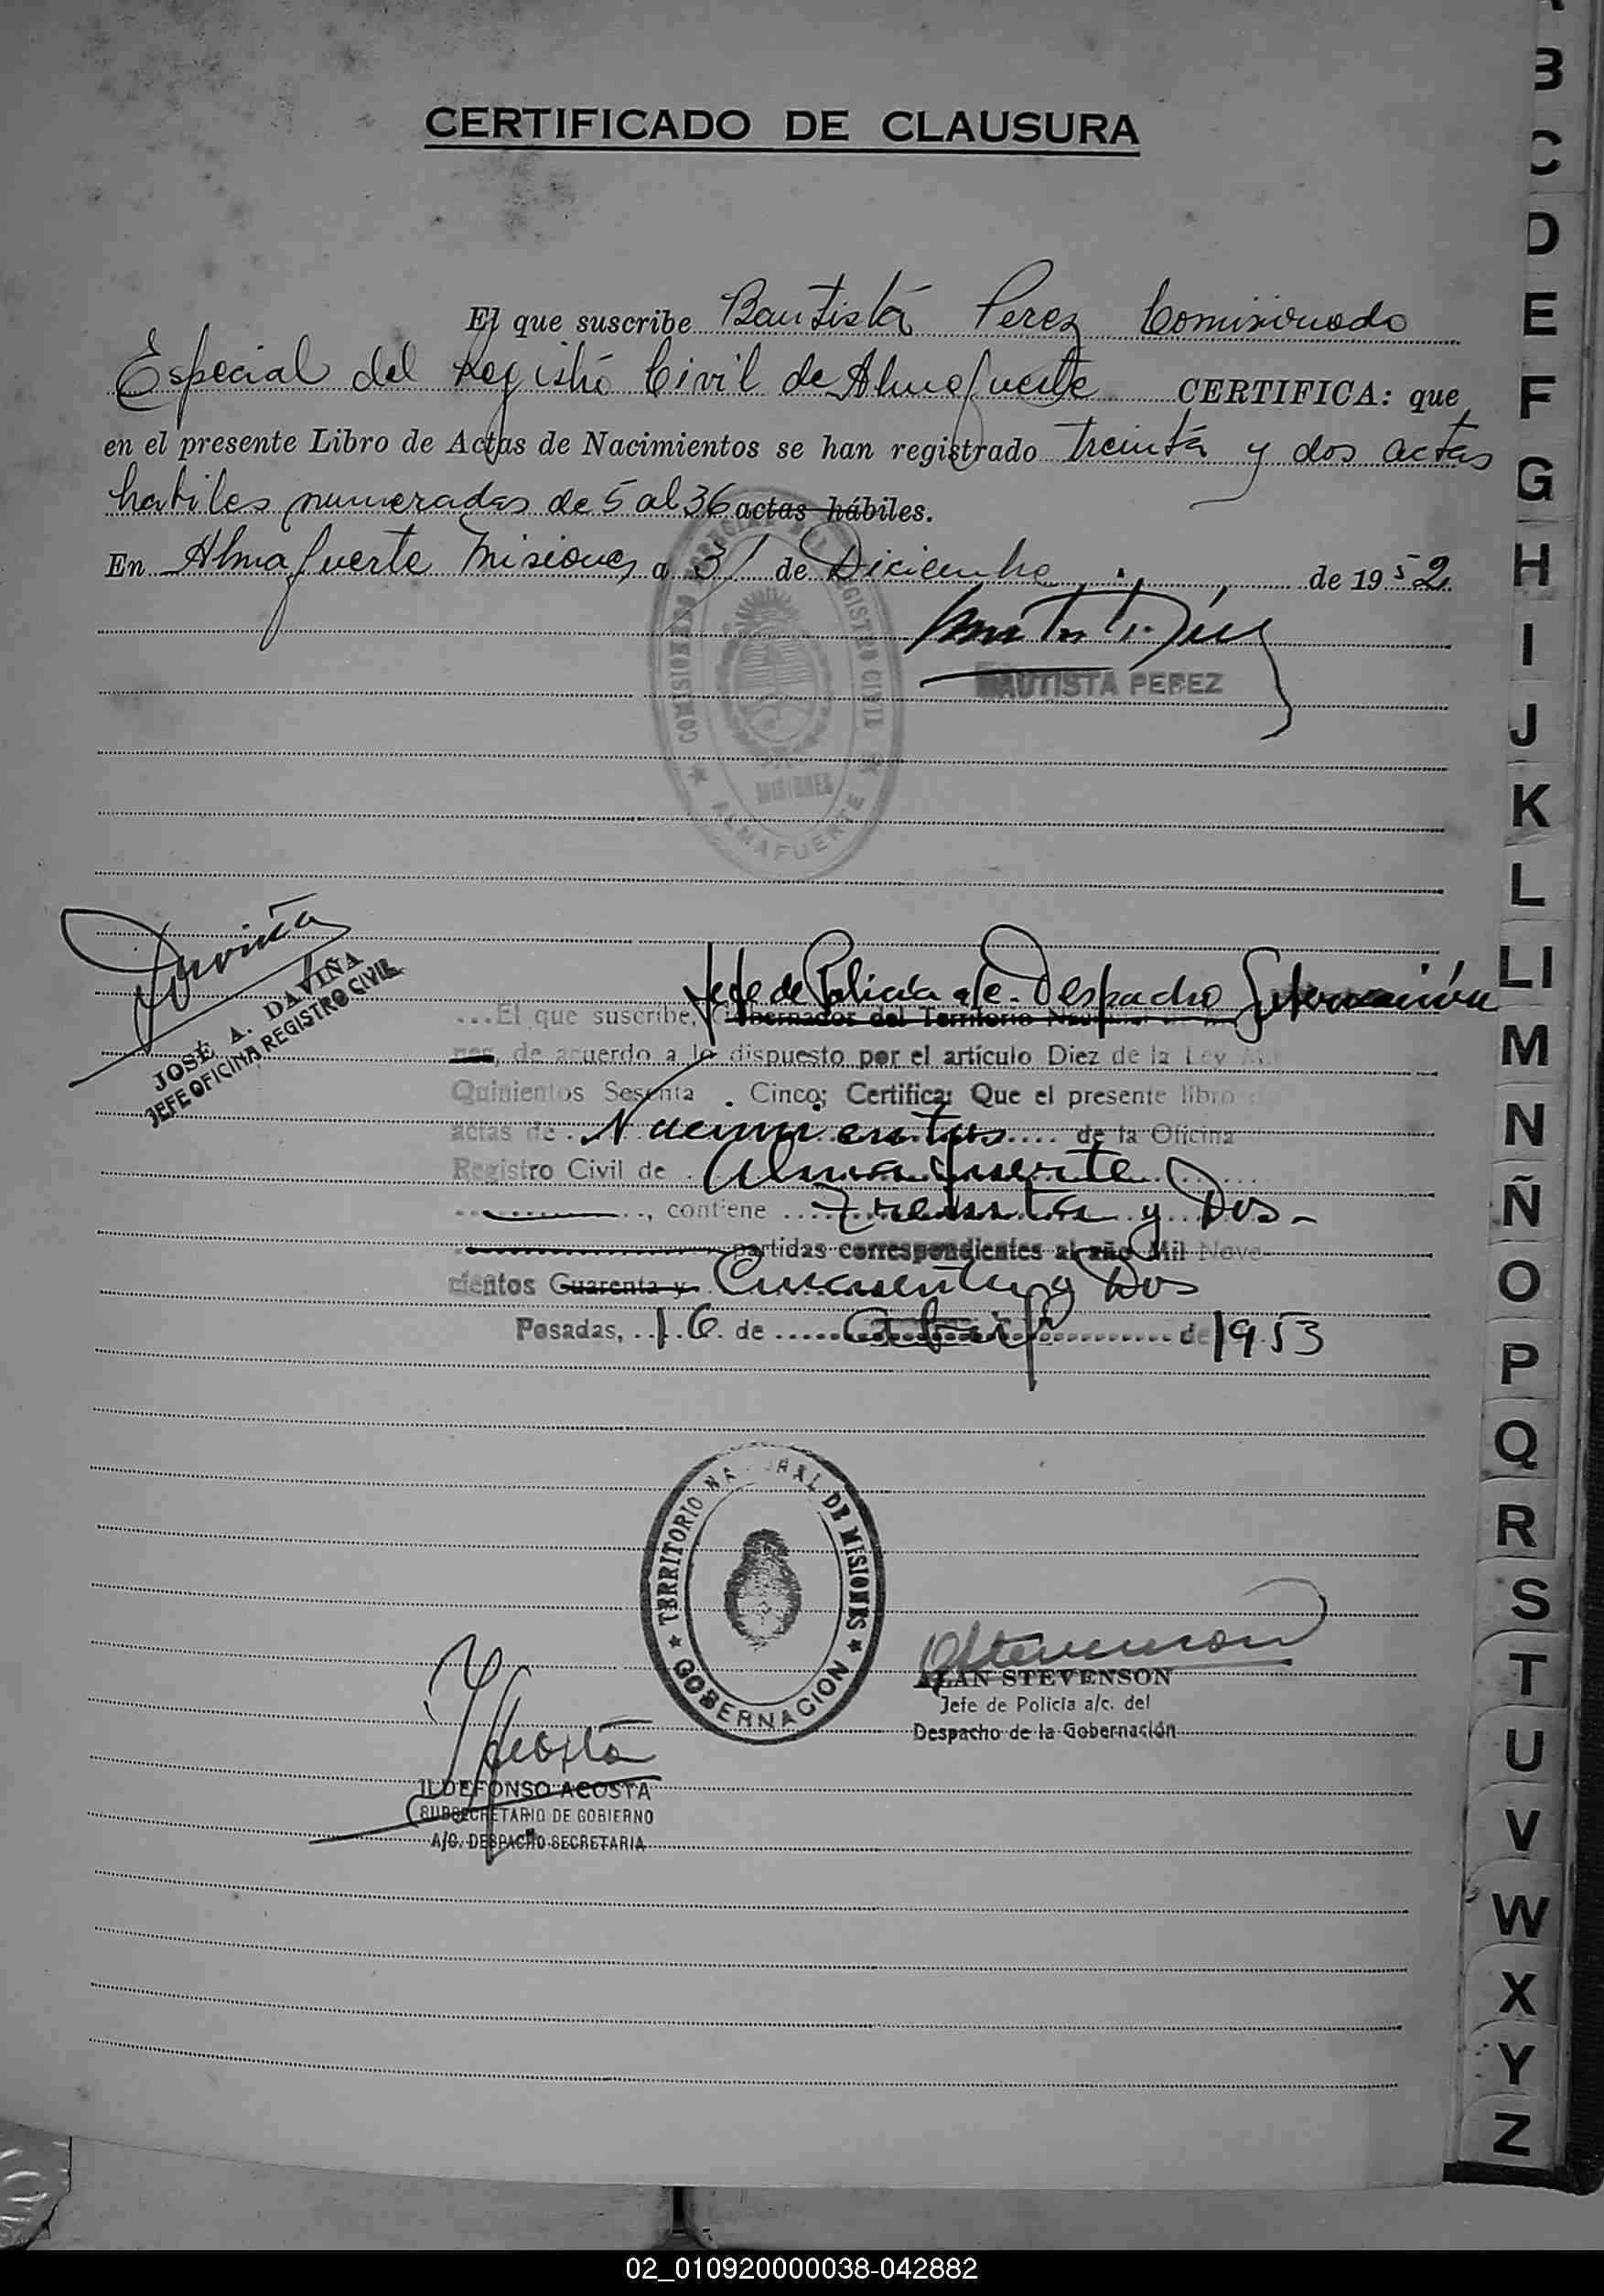 CERTIFICADO DE CLAUSURA
El que suscribe Bautista Perez Comisionado
Especial del Registro Civil de Almafuerte CERTIFICA: que
en el presente Libro de Actas de Nacimientos se han registrado treinta y dos actas
habiles numeradas de 5 al 36 actas hábiles.
En Almafuerte Misiones a 31 de Diciembre de 1952
BAUTISTA PEREZ
COMISIONADO ESPECIAL DEL REGISTRO CIVIL
MISIONES
ALMAFUERTE
Daviña
JOSÉ A. DAVIÑA
JEFE OFICINA REGISTRO CIVIL
Jefe de Policia a/c. Despacho Gobernación
El que suscribe, Gobernador del Territorio Nacional de
nes, de acuerdo a lo dispuesto por el artículo Diez de la Ley
Quinientos Sesenta Cinco; Certifica: Que el presente libro
actas de Nacimientos de la Oficina
Registro Civil de Almafuerte
contiene Treinta y Dos
partidas correspondientes al año Mil Nove
cientos Cuarenta y Cincuenta y Dos
Posadas, 16 de Abril de 1953
TERRITORIO NACIONAL DE MISIONES
GOBERNACION
ALAN STEVENSON
Jefe de Policía a/c. del
Despacho de la Gobernación
Acosta
ILDEFONSO ACOSTA
SUBSECRETARIO DE GOBIERNO
A/C. DESPACHO SECRETARIA
B
C
D
E
F
G
H
I
J
K
L
Ll
M
N
Ñ
O
P
Q
R
S
T
U
V
W
X
Y
Z
02_010920000038-042882